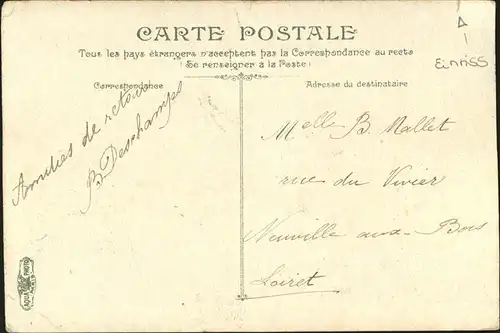 CARTE POSTALE
Tous les pays étrangers n'acceptent pas la Correspondance au recto
(Se renseigner à la Poste)
Correspondance
Adresse du destinataire
Einriss
Amitiés de retour
B. Deschamps
Melle B. Mallet
rue du Vivier
Neuville aux-Bois
Loiret